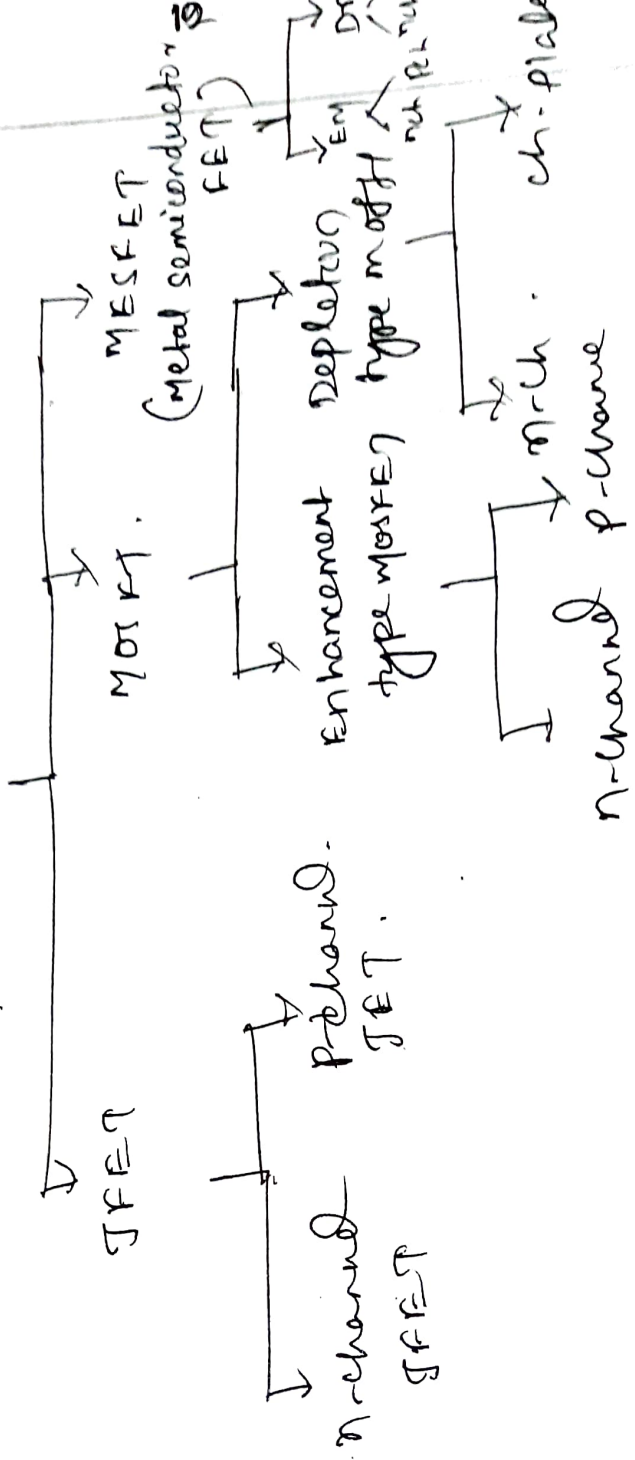 JFET
MOSFT.
MESFET
(Metal semiconductor
FET)
n-channel
JFET
p-channel
JET.
Enhancement
type MOSFET
Depletion
type moff
EM
nch
Pch
n-channel
p-channe
n-ch.
ch-